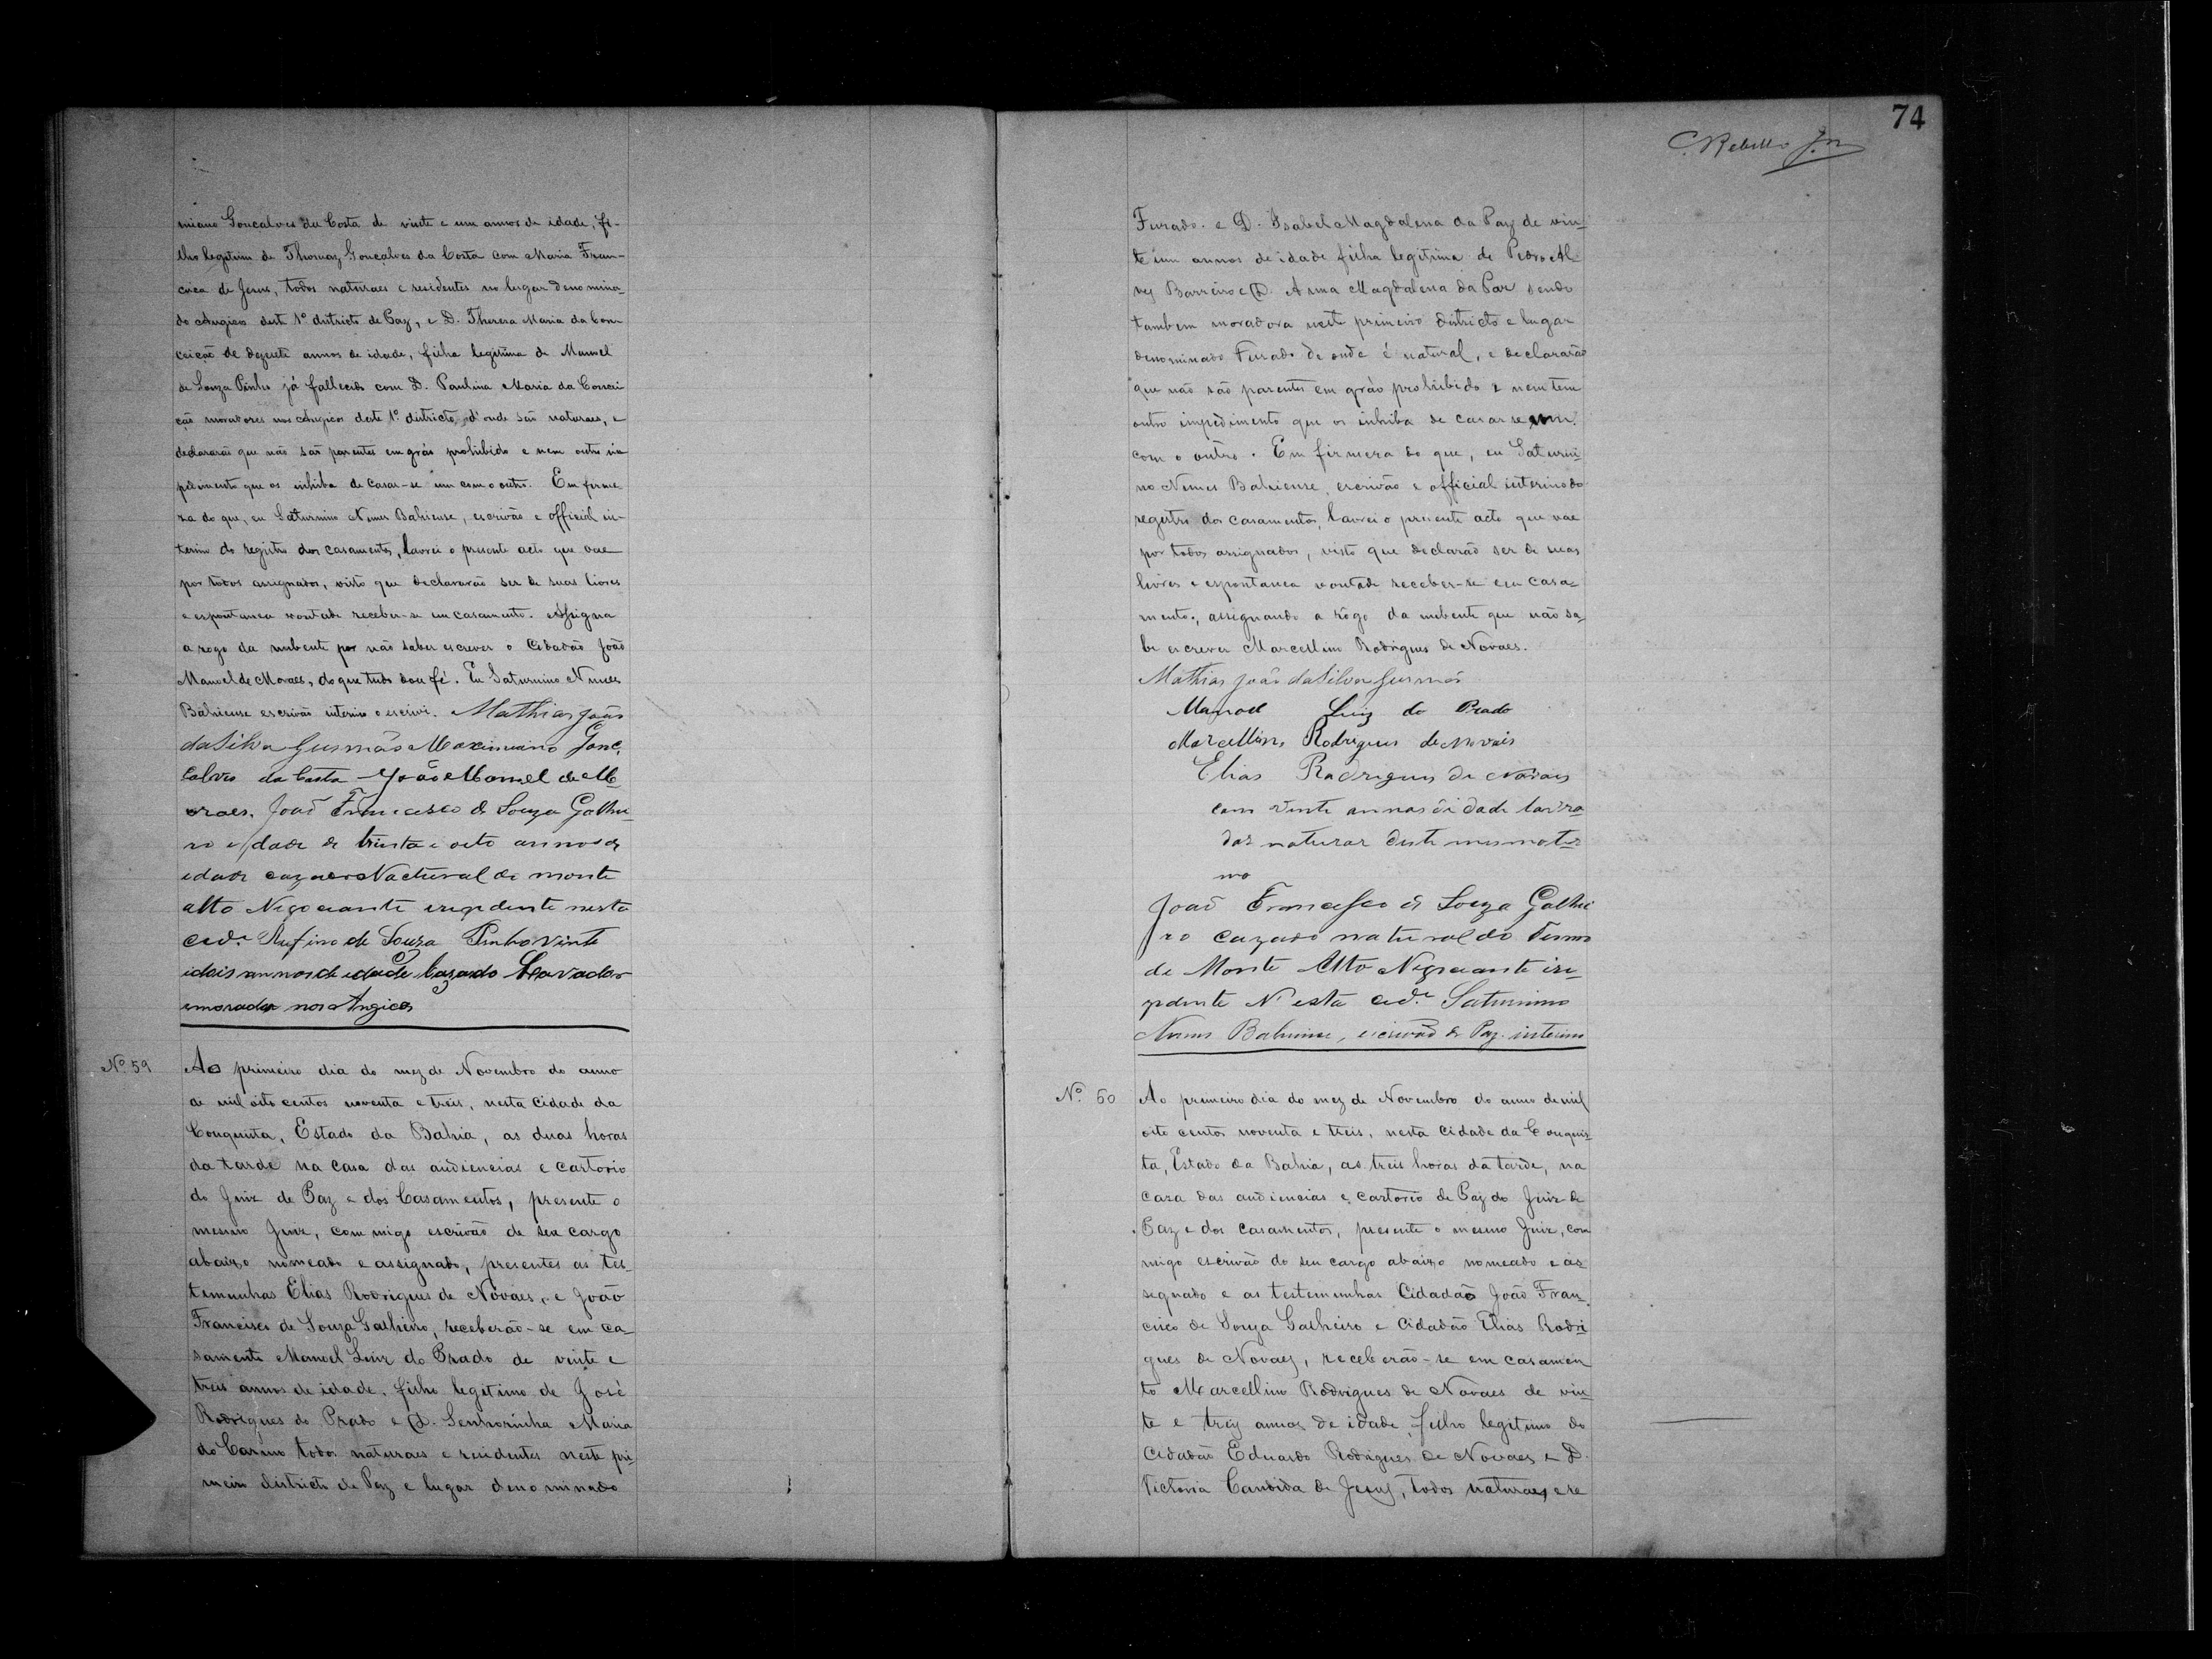 miano Gonçalves da Costa de vinte e um annos de idade, fi-
lho legitimo de Thomaz Gonçalves da Costa com Maria Fran-
cisca de Jesus, todos naturaes e residentes no lugar denomina-
do Angicos deste 1º districto de Paz, e D. Thereza Maria da Con-
ceição de dezesete annos de idade, filha legitima de Manoel
de Souza Pinho já fallecido com D. Paulina Maria da Concei-
ção moradores nos Angicos deste 1º districto, d'onde são naturaes, e
declararão que não são parentes em gráo prohibido e nem outro im
pedimento que os inhiba de casar-se um com o outro. Em firme
za do que, eu Saturnino Nunes Bahiense, escrivão e official in-
terino do registro dos casamentos, lavrei o presente acto que vae
por todos assignados, visto que declararão ser de suas livres
e espontanea vontade receber-se em casamento. Assigna
a rogo da nubente por não saber escrever o Cidadão João
Manoel de Moraes, do que tudo dou fé. Eu Saturnino Nunes
Bahiense escrivão interino o escrivi. Mathias João
da Silva Gusmão Maximiano Gonc,
calves da Costa João Manoel de Mo
oraes. João Francisco de Souza Galhei
ro idade de trinta e oito annos de
idade cazado Nactural de monte
alto Negociante irezidente nesta
cid.e Rufino de Souza Pinho vinte
idois annos de idade Cazado Lavrador
emorador nos Angicos
Nº 59
Ao primeiro dia do mez de Novembro do anno
de mil oito centos noventa e treis, nesta Cidade da
Conquista, Estado da Bahia, as duas horas
da tarde na casa das audiencias e cartorio
do Juiz de Paz e dos Casamentos, presente o
mesmo Juiz, com migo escrivão de seu cargo
abaixo nomeado e assignado, presentes as tes-
temunhas Elias Rodrigues de Novaes, e João
Francisco de Souza Galheiro, receberão-se em ca-
samento Manoel Luiz do Prado de vinte e
treis annos de idade, filho legitimo de José
Rodrigues do Prado e D. Senhorinha Maria
do Carmo todos naturaes e residentes neste pri
meiro districto de Paz e lugar denominado
74
C. Rebello Jn
Furado. e D. Isabel Magdalena da Paz de vin-
te um annos de idade filha legitima de Pedro Al-
ves Barreiro e D. Anna Magdalena da Paz sendo
tambem moradora neste primeiro districto e lugar
denominado Furado de onde é natural, e declararão
que não são parentes em gráo prohibido e nem tem
outro impedimento que os inhiba de casar se um
com o outro. Em firmera do que, eu Saturni-
no Nunes Bahiense, escrivão e official interino do
registro dos casamentos, lavrei o presente acto que vae
por todos assignados, visto que declarão ser de suas
livres e espontanea vontade receber-se em casa-
mento, assignando a rôgo da nubente que não sa-
be escrever Marcellino Rodrigues de Novaes.
Mathias João da Silva Gusmão
Manoel Luiz do Prado
Marcellino Rodrigues de Novais
Elias Rodrigues de Novais
com vinte annos di dade lavra
dor naturar deste mesmo ter
mo
João Francisco de Souza Galhei
ro cazado natural do Termo
de Monte Alto Negociante ire
zidente N'esta cid.e Saturnino
Nunes Bahiense, escrivão de Paz interino
Nº 60
Ao primeiro dia do mez de Novembro do anno de mil
oito centos noventa e treis, nesta Cidade da Conquis-
ta, Estado da Bahia, as treis horas da tarde, na
casa das audiencias e cartorio de Paz do Juiz de
Paz e dos casamentos, presente o mesmo Juiz, com
migo escrivão do seu cargo abaixo nomeado e as-
segnado e as testemunhas Cidadão João Fran-
cisco de Souza Galheiro e Cidadão Elias Rodri
gues de Novaes, receberão-se em casamen
to Marcellino Rodrigues de Novaes de vin-
te e trez annos de idade, filho legitimo do
Cidadão Eduardo Rodrigues de Novaes e D.
Victoria Candida de Jesus, todos naturaes e re